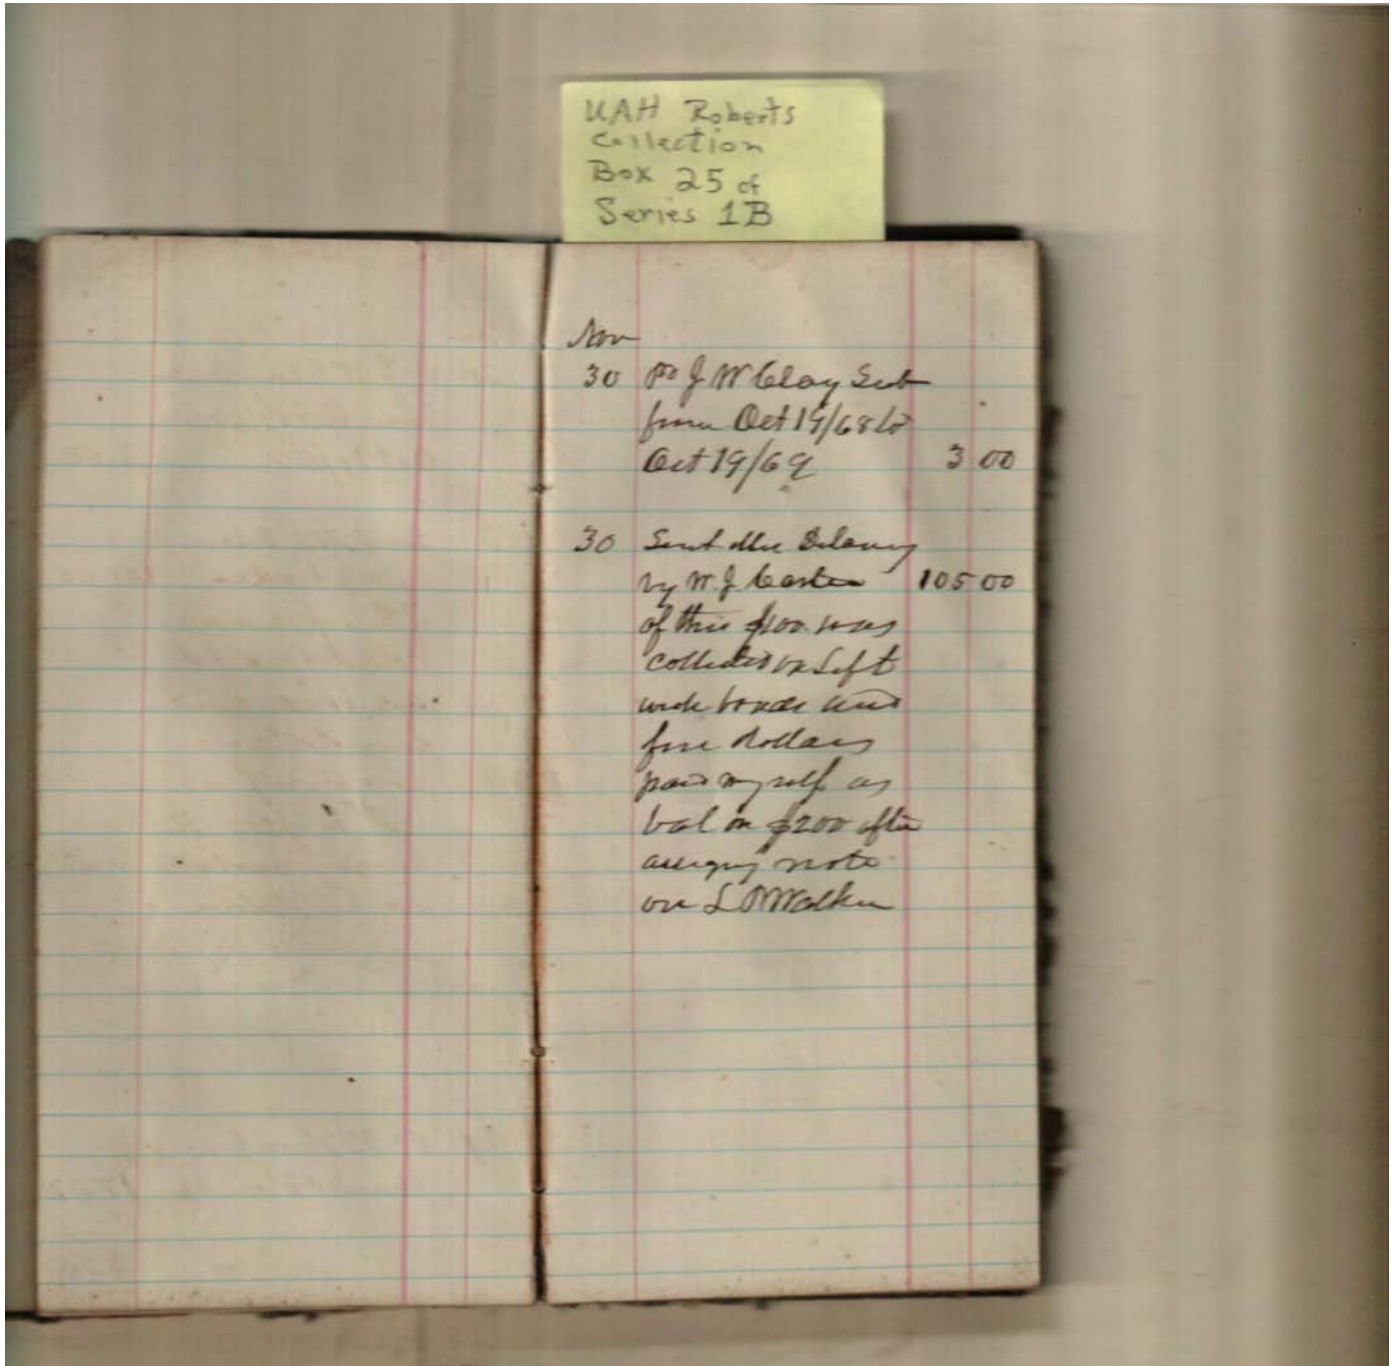 UAH Roberts
Collection
Box 25 of
Series 1B
Nov
30 Pd J W Clay Sub
from Oct 19/68 to
Oct 19/69 3 00
30 Sent Mrs Delaney
by W. J. 105 00
of this $100. was
collected on
and
five dollars
paid myself as
bal on $200 after
note
on L P Walker